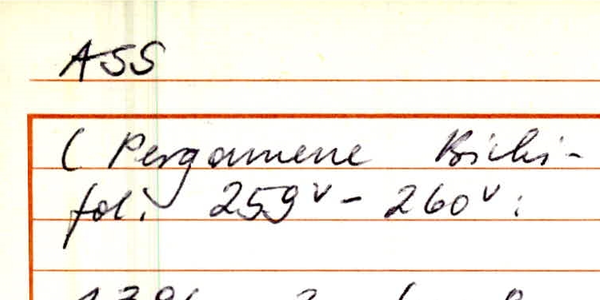 ASS
( Pergamene Bichi-
fol. 259v - 260v: